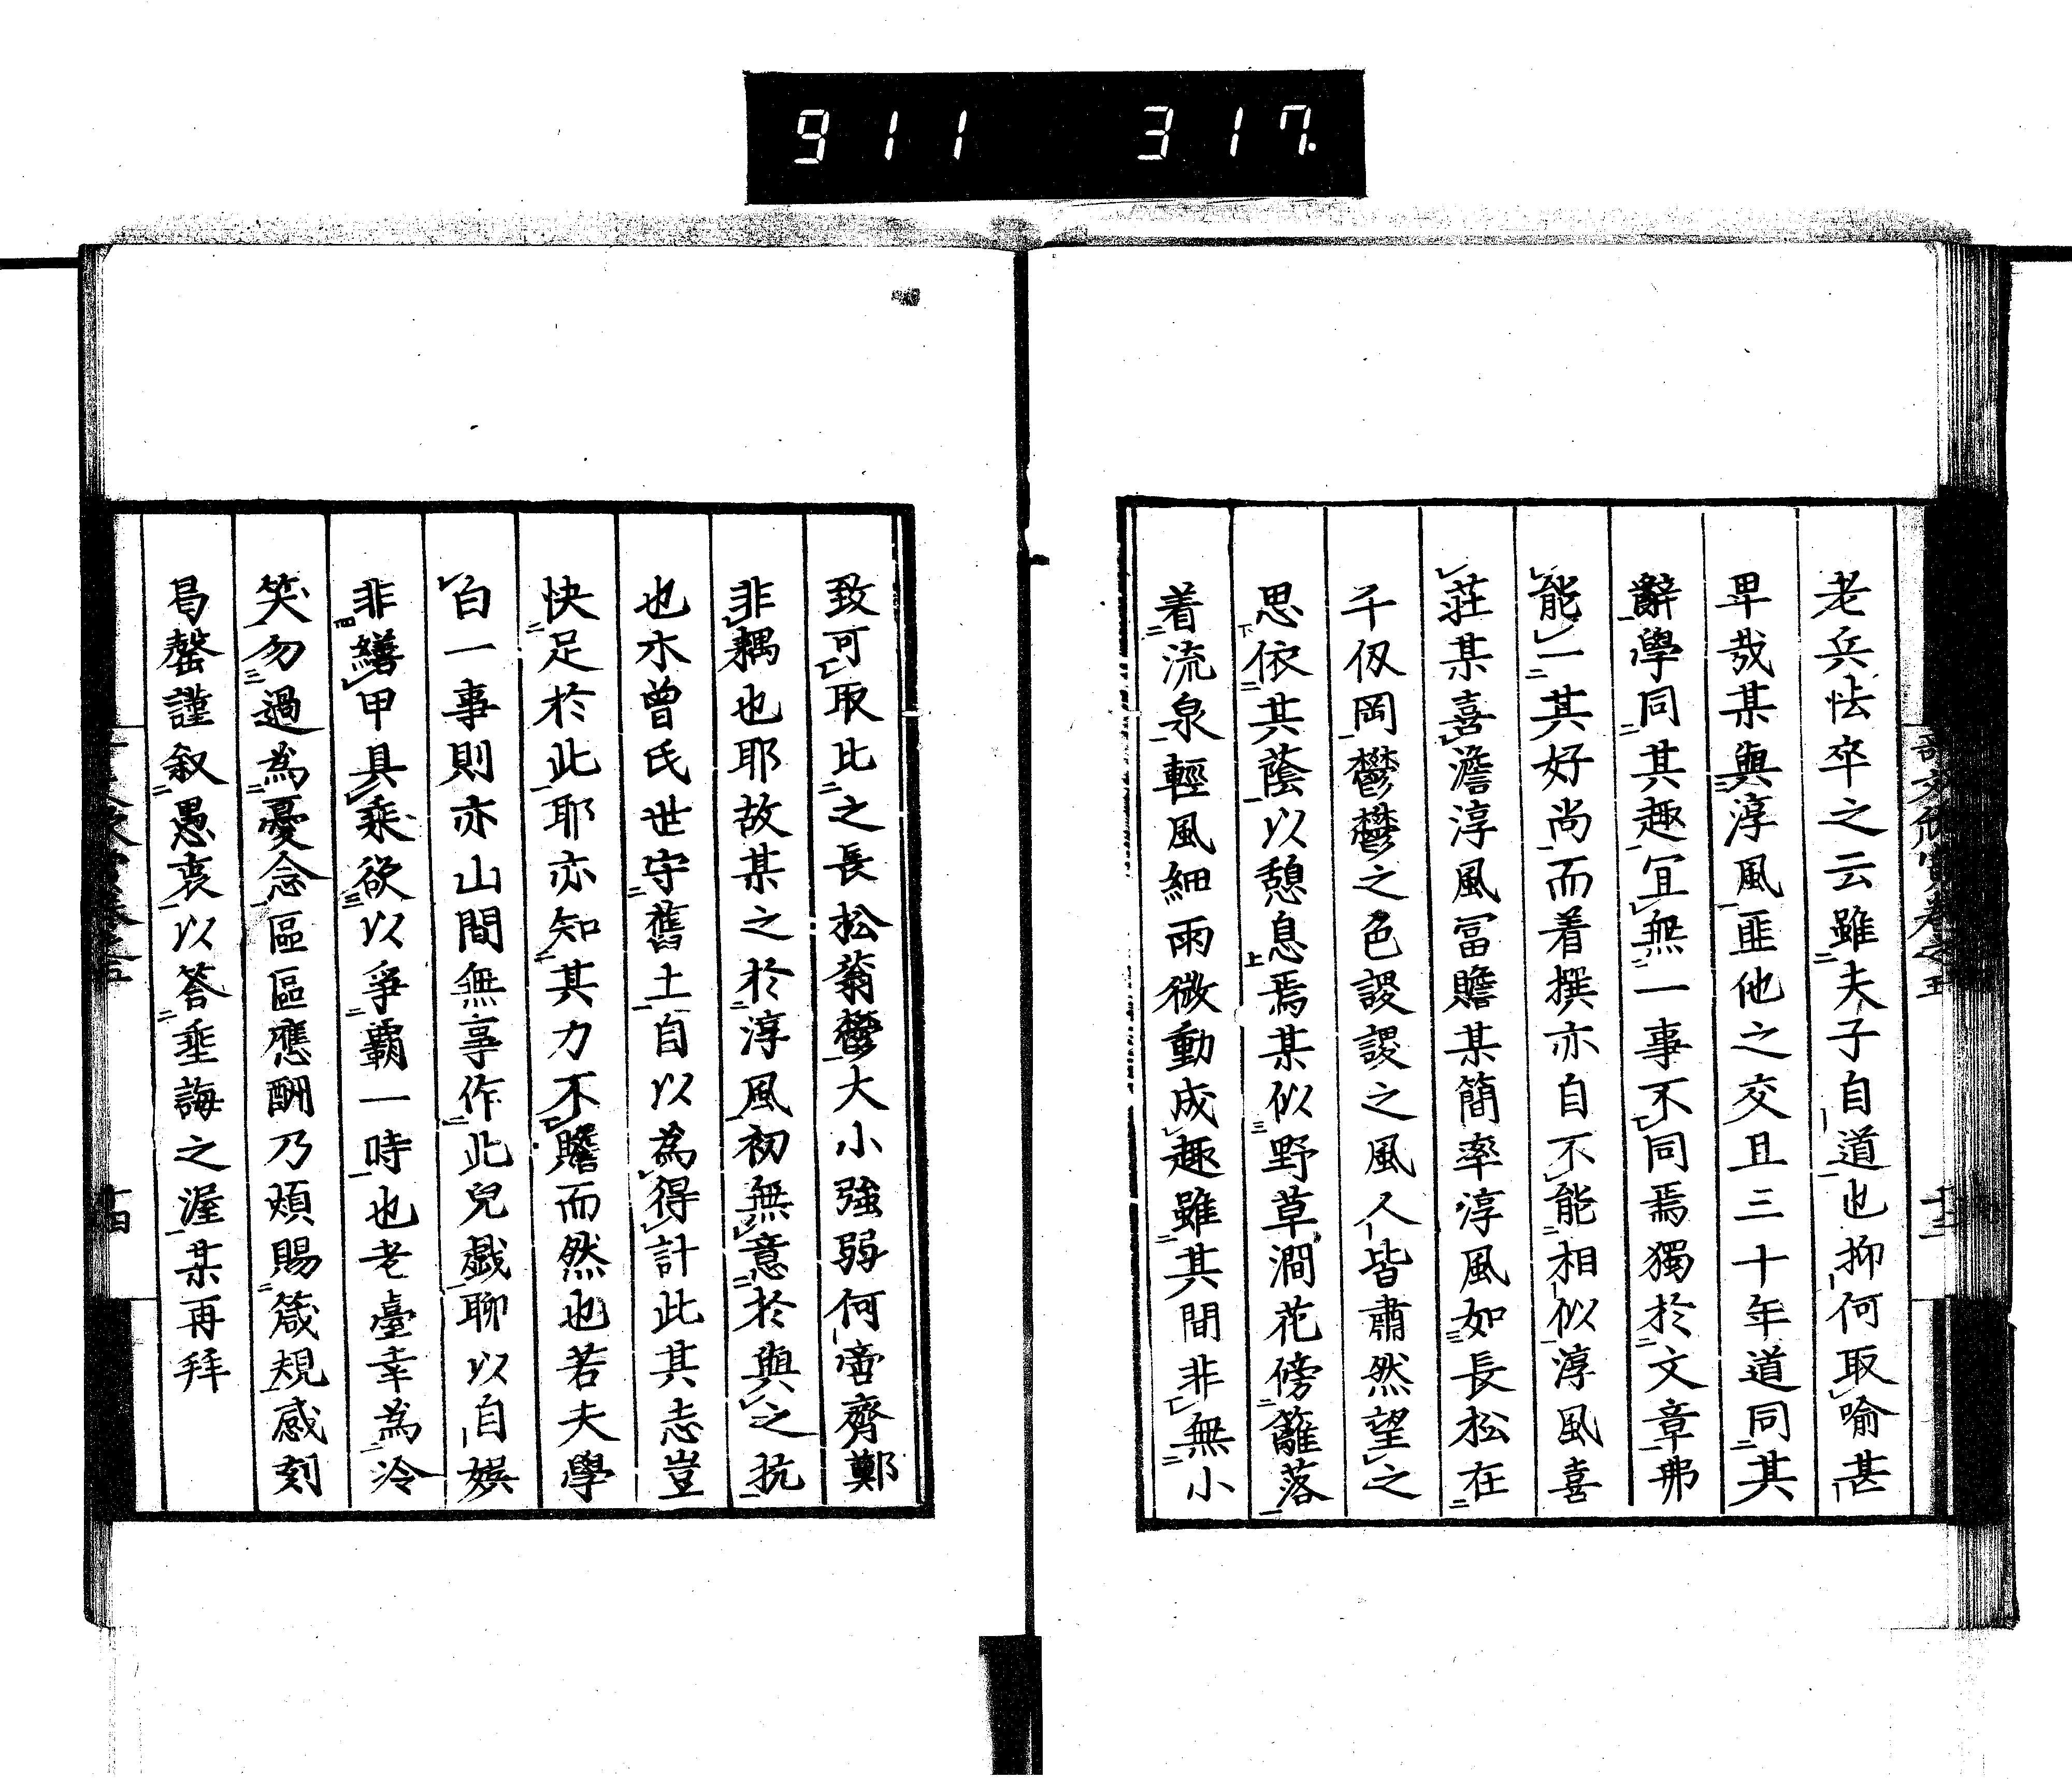 911 317.
老兵怯卒之云雖夫子自道也抑何取喻甚
卑哉某與淳風匪他之交且三十年道同其
辭學同其趣宜無一事不同焉獨於文章弗
能一其好尚而着撰亦自不能相似淳風喜
莊某喜澹淳風富贍某簡率淳風如長松在
千仭岡鬱鬱之色謖謖之風人皆肅然望之
思依其蔭以憩息焉某似野草澗花傍籬落
着流泉輕風細雨微動成趣雖其間非無小
致可取比之長松蓊鬱大小強弱何啻齊鄭
非耦也耶故某之於淳風初無意於與之抗
也木曾氏世守舊土自以為得計此其志豈
快足於此耶亦知其力不贍而然也若夫學
白一事則亦山間無事作此兒戲聊以自娯
非繕甲具乘欲以爭霸一時也老臺幸為冷
笑勿過為憂念區區應酬乃煩賜箴規感刻
曷罄謹叙愚衷以答垂誨之渥某再拜
十四